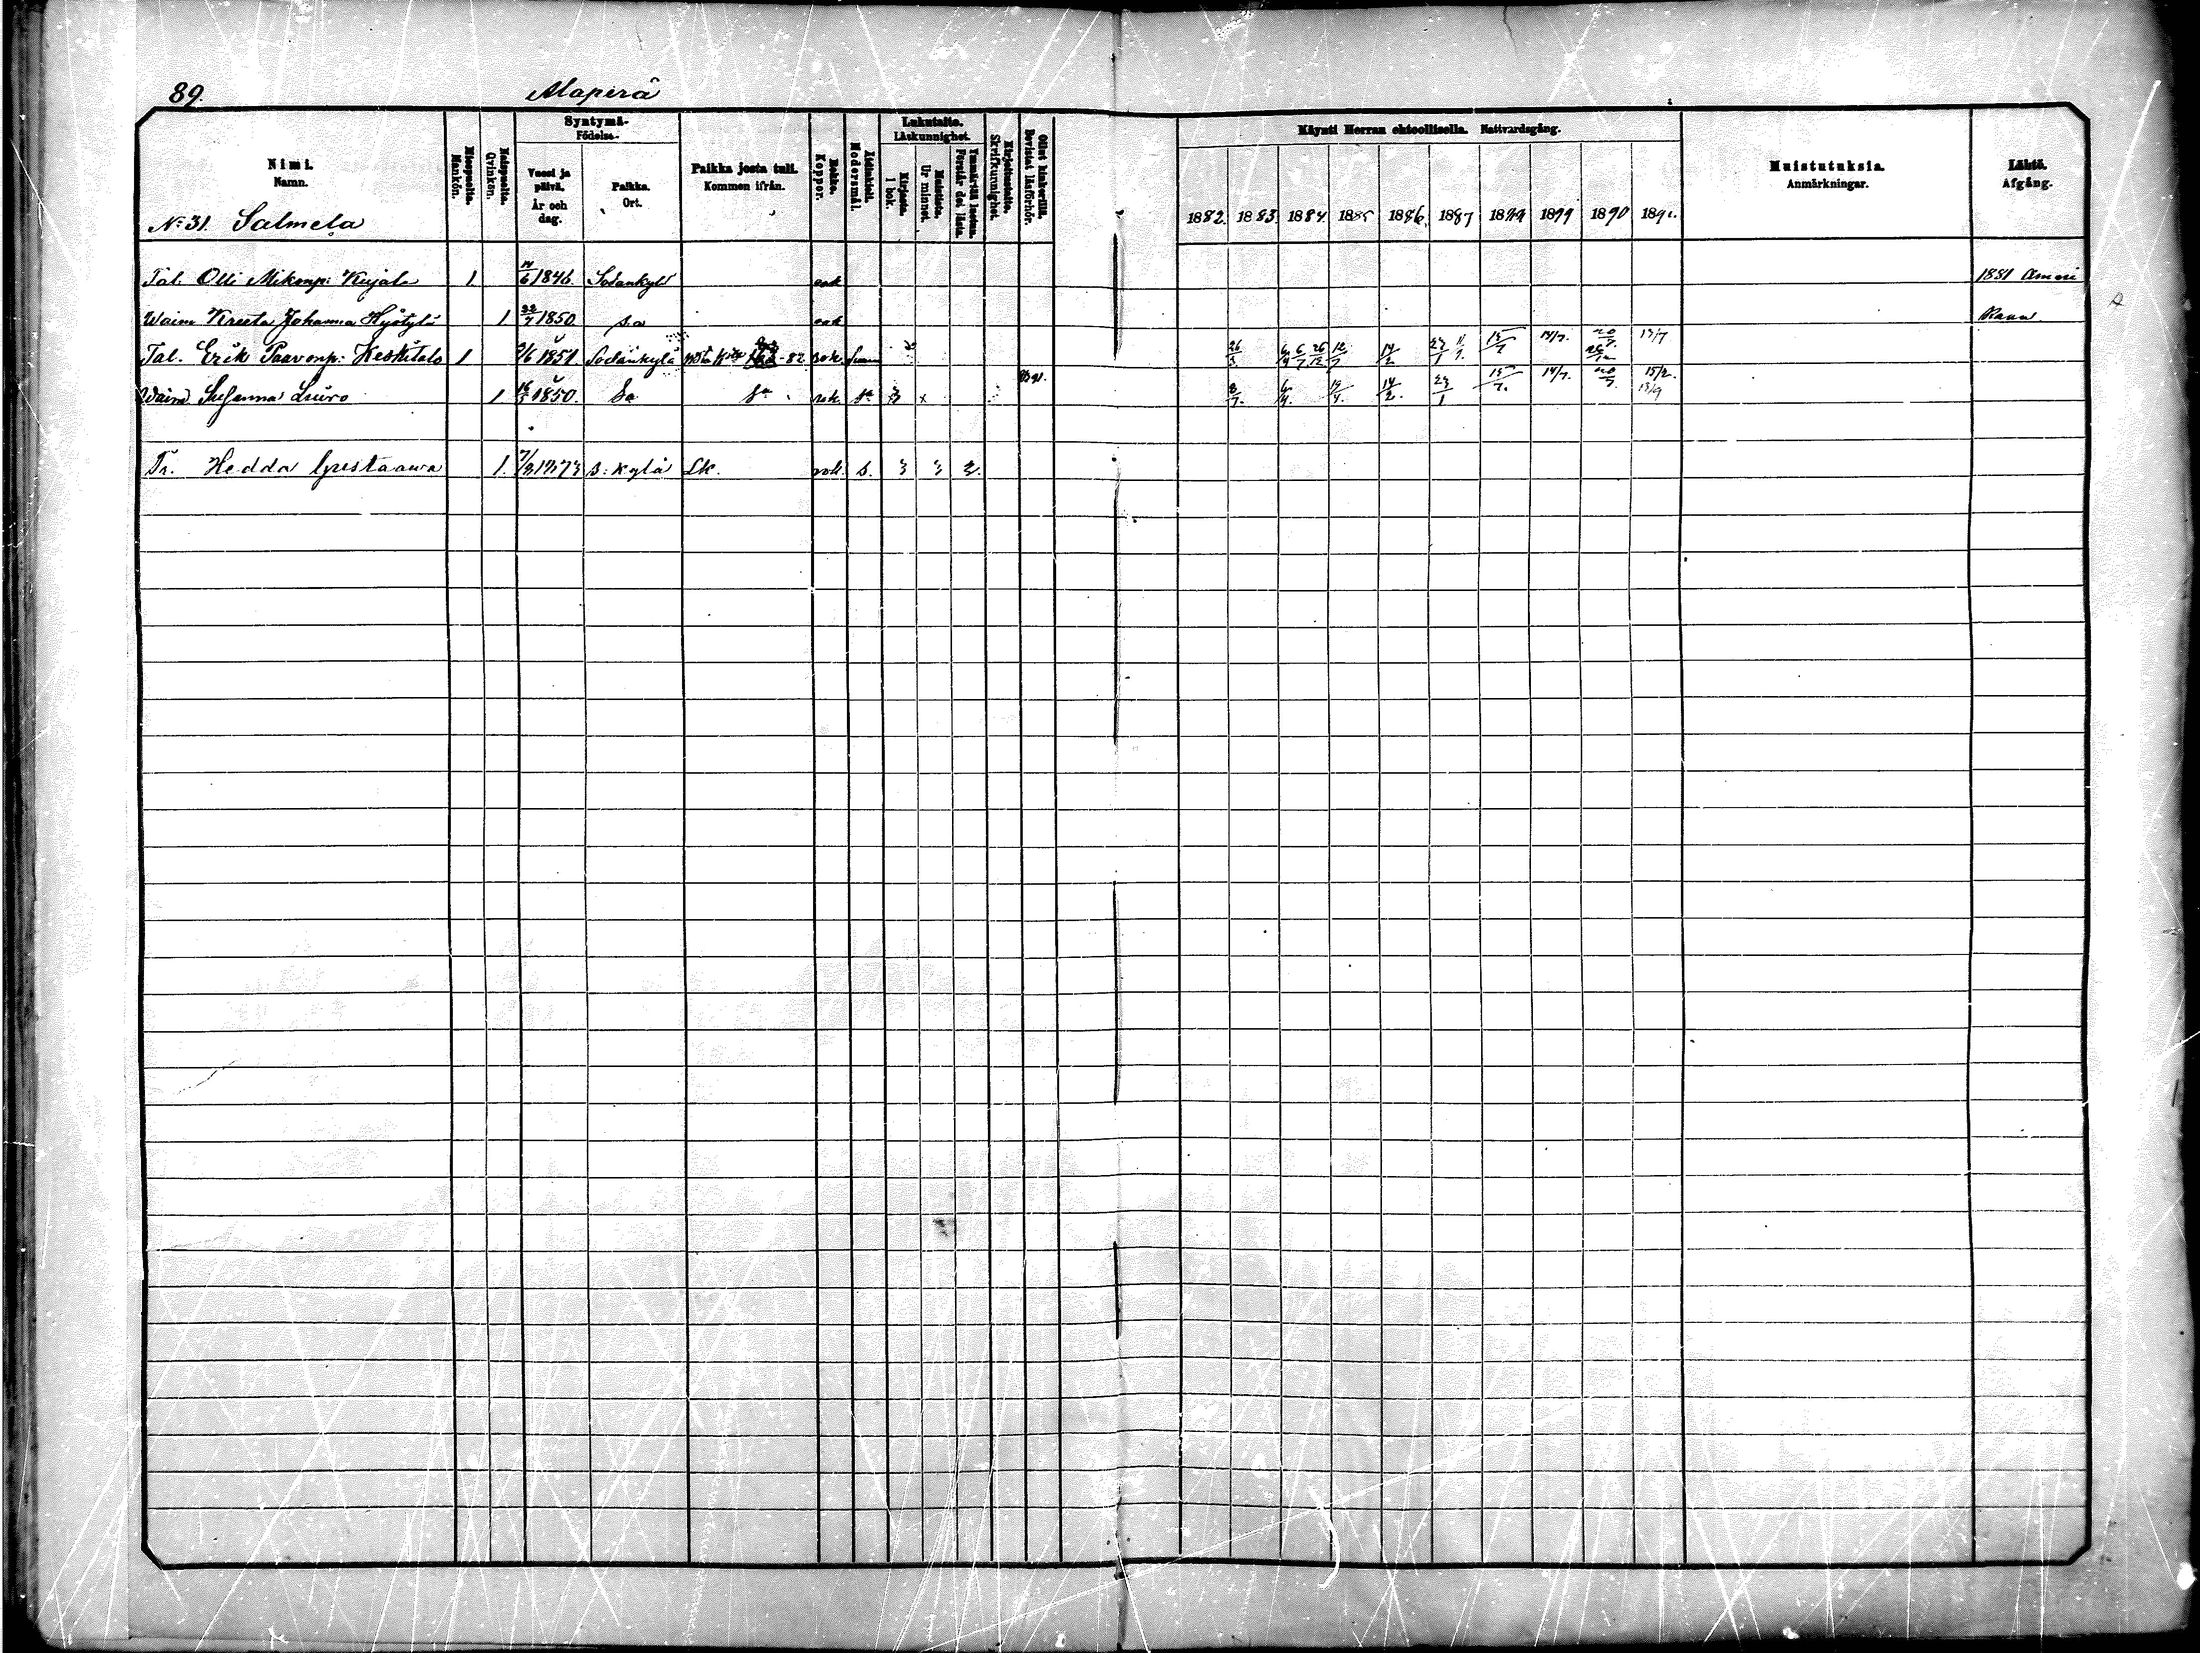 89.
Alaperä
Nimi.
Namn.
Miespuolta.
Mankön.
Naispuolta.
Qvinkön.
Syntymä-
Födelse-
Vuosi ja
päivä.
År och
dag.
Paikka.
Ort.
Paikka josta tuli.
Kommen ifrån.
Rokko.
Koppor.
Äidinkieli.
Modersmål.
Lukutaito.
Läskunnighet.
Kirjasta.
I bok.
Muistista.
Ur minnet.
Ymmärtää luetun.
Förstår det lästa.
Kirjoitustaito.
Skrifkunnighet.
Ollut kinkerillä.
Bevistat läsförhör.
Käynti Herran ehtoollisella. Nattvardsgång.
1882. 1883. 1884. 1885 1886. 1887 1889 1899 1890 1891.
Muistutuksia.
Anmärkningar.
Lähtö.
Afgång.
No 31. Salmela
Tal. Olli Mikonp: Kujala 1 14/6 1846. Sodankylä rok 1881 Ameri
Waim Kreeta Johanna Hyötylä 1 22/7 1850. s.a rok kaan.
Tal. Erik Paavonp: Keskitalo 1 /6 1851. Sodankylä -82 rok. Suom 26/3. 6/4 6/7 26/12 12/7 14/2 23/1 15/7 14/7. 20/7. 13/7
Waim Susanna Liiro 1 16/5 1850. Sa Sa rok. Sa 3 x 8/7. 6/4. 14/2. 23/1 15/7. 14/7. 20/7. 15/2. 13/9
Tr. Hedda Gustaawa 1. 7/3 1873 S:kylä Lk. rok. S. 3 3 2.